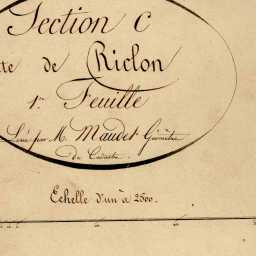 Section C
te de Riclon
1re Feuille
Levé par M. Maudet Géomètre
du Cadastre.
Echelle d'un à 2500.